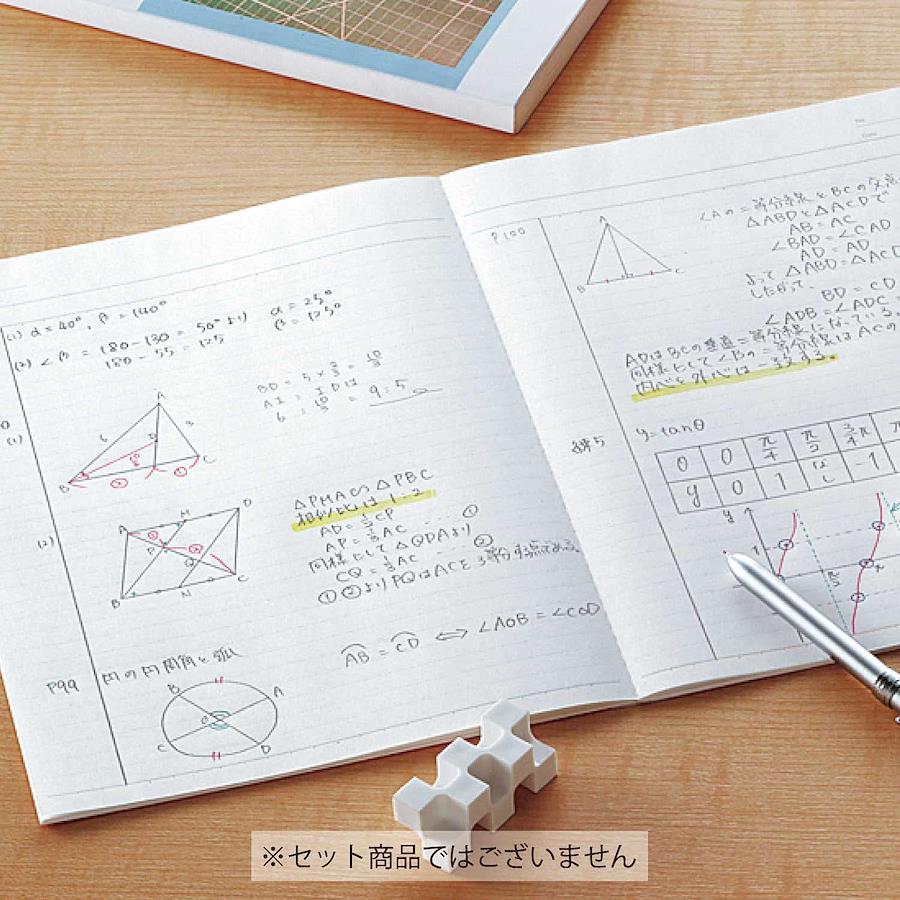 (1) α=40°, β=140°
(2) ∠β = 180-130 = 50°より
180-55=125
α=25°
β=125°
(1)
A
6
3
B
C
D
BD = 5 ×
= 9:5
(2)
A
M
D
P
Q
B
N
C
△PMA∽△PBC
相似比は 1:2
AP=⅓AC ……①
同様にして△QDAより
CQ=⅓AC ……②
①②よりPQはACを3等分する点である
P99
円の円周角と弧
B
A
O
C
D
AB = CD ⇔ ∠AOB = ∠COD
No.
Date
P100
A
B
C
∠Aの二等分線とBCの交点
△ABDと△ACDで
AB = AC
∠BAD=∠CAD
AD = AD
よって △ABD≡△ACD
したがって、
BD = CD
∠ADB=∠ADC=
ADはBCの垂直二等分線になっている。
同様にして∠Bの二等分線はACの
内心と外心は一致する。
練5
y=tanθ
θ 0 π/4 π/2 3/4π π
y 0 1 -1
y
1
π/2
π
※セット商品ではございません